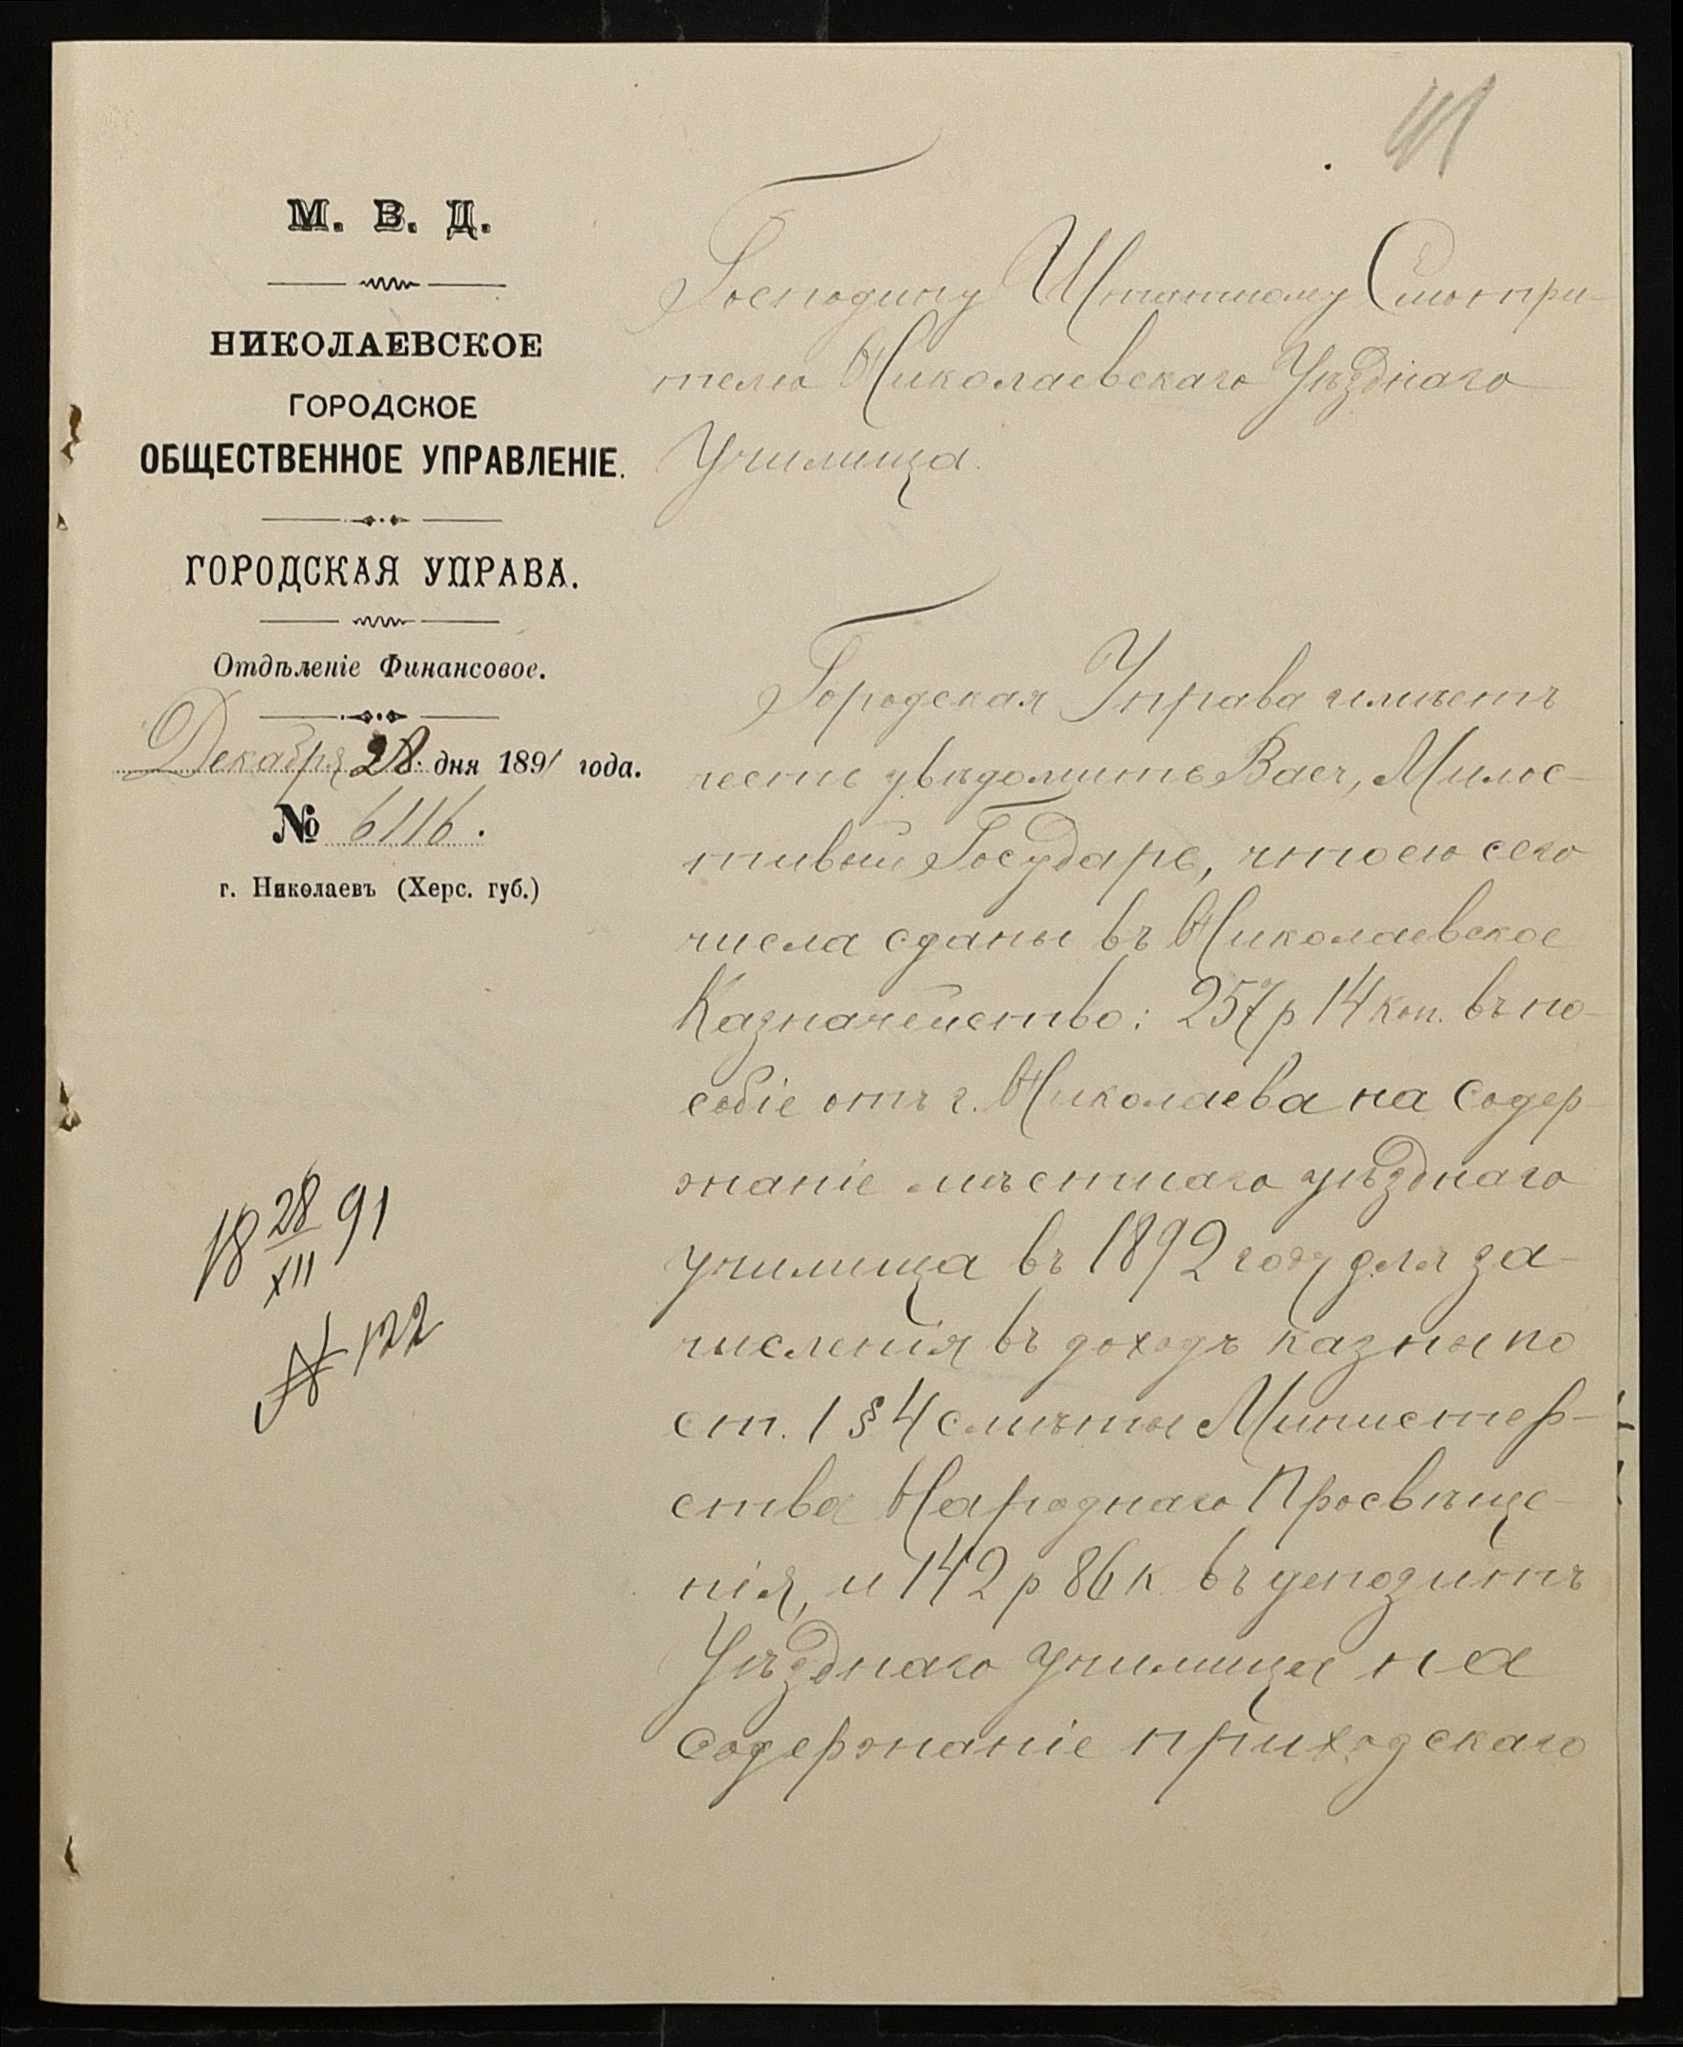 41
М. В. Д.
НИКОЛАЕВСКОЕ
ГОРОДСКОЕ
ОБЩЕСТВЕННОЕ УПРАВЛЕНІЕ.
ГОРОДСКАЯ УПРАВА.
Отдѣленіе Финансовое.
Декабря 28 дня 1891 года.
№ 6116.
г. Николаевъ (Херс. губ.)
18 28/XII 91
№ 122
Господину Штатному Смотри-
телю Николаевскаго Уѣзднаго
Училища.
Городская Управа имѣетъ
честь увѣдомить Васъ, Милос-
тивый Государь, что ею сего
числа сданы въ Николаевское
Казначейство: 257 р 14 коп. въ по-
собіе отъ г. Николаева на содер-
жаніе мѣстнаго уѣзднаго
училища въ 1892 году для за-
численія въ доходъ казны по
ст. 1 § 4 смѣты Министер-
ства Народнаго Просвѣще-
нія, и 142 р 86 к. въ депозитъ
Уѣзднаго училища на
содержаніе приходскаго